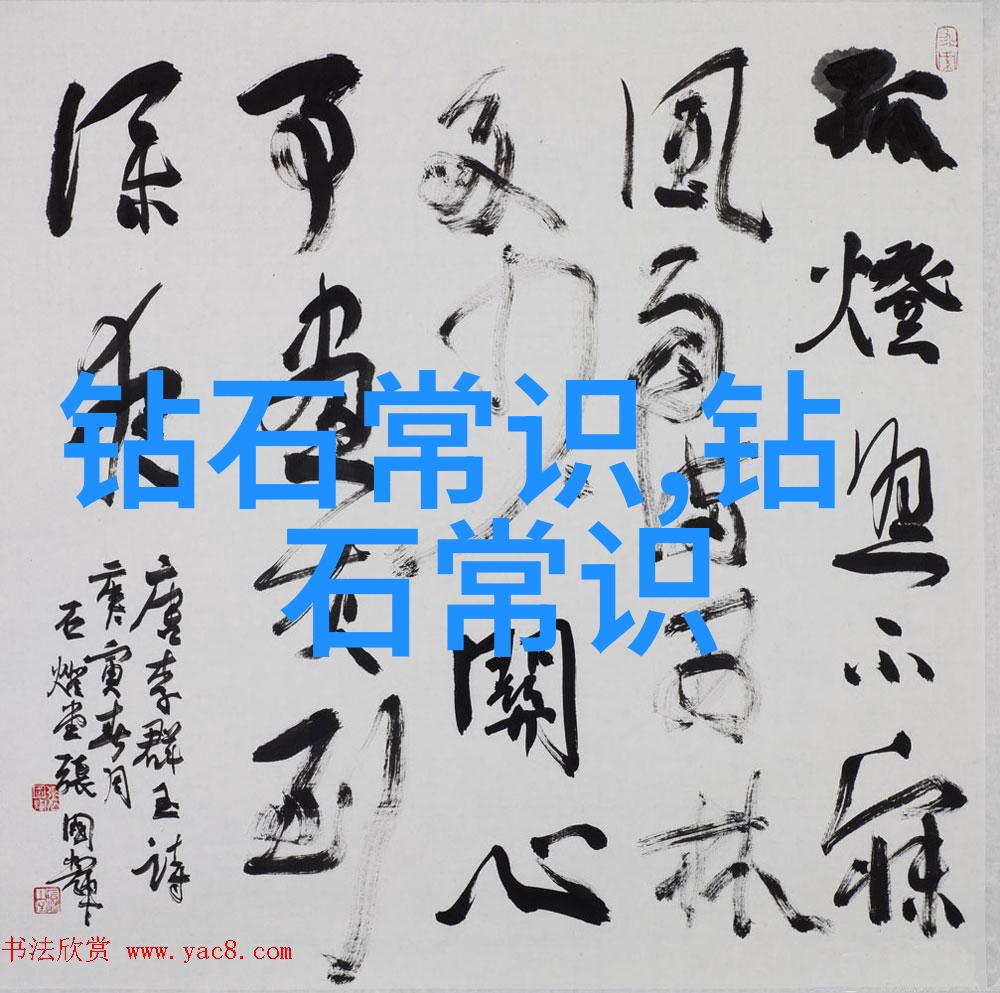 钻石常识,钻
石常识
孤燈照不寐
風雨滿西林
多少關心
事書灰到
深夜
唐李群玉詩
庚寅春月
石燈堂張國輝
书法欣赏 www.yac8.com